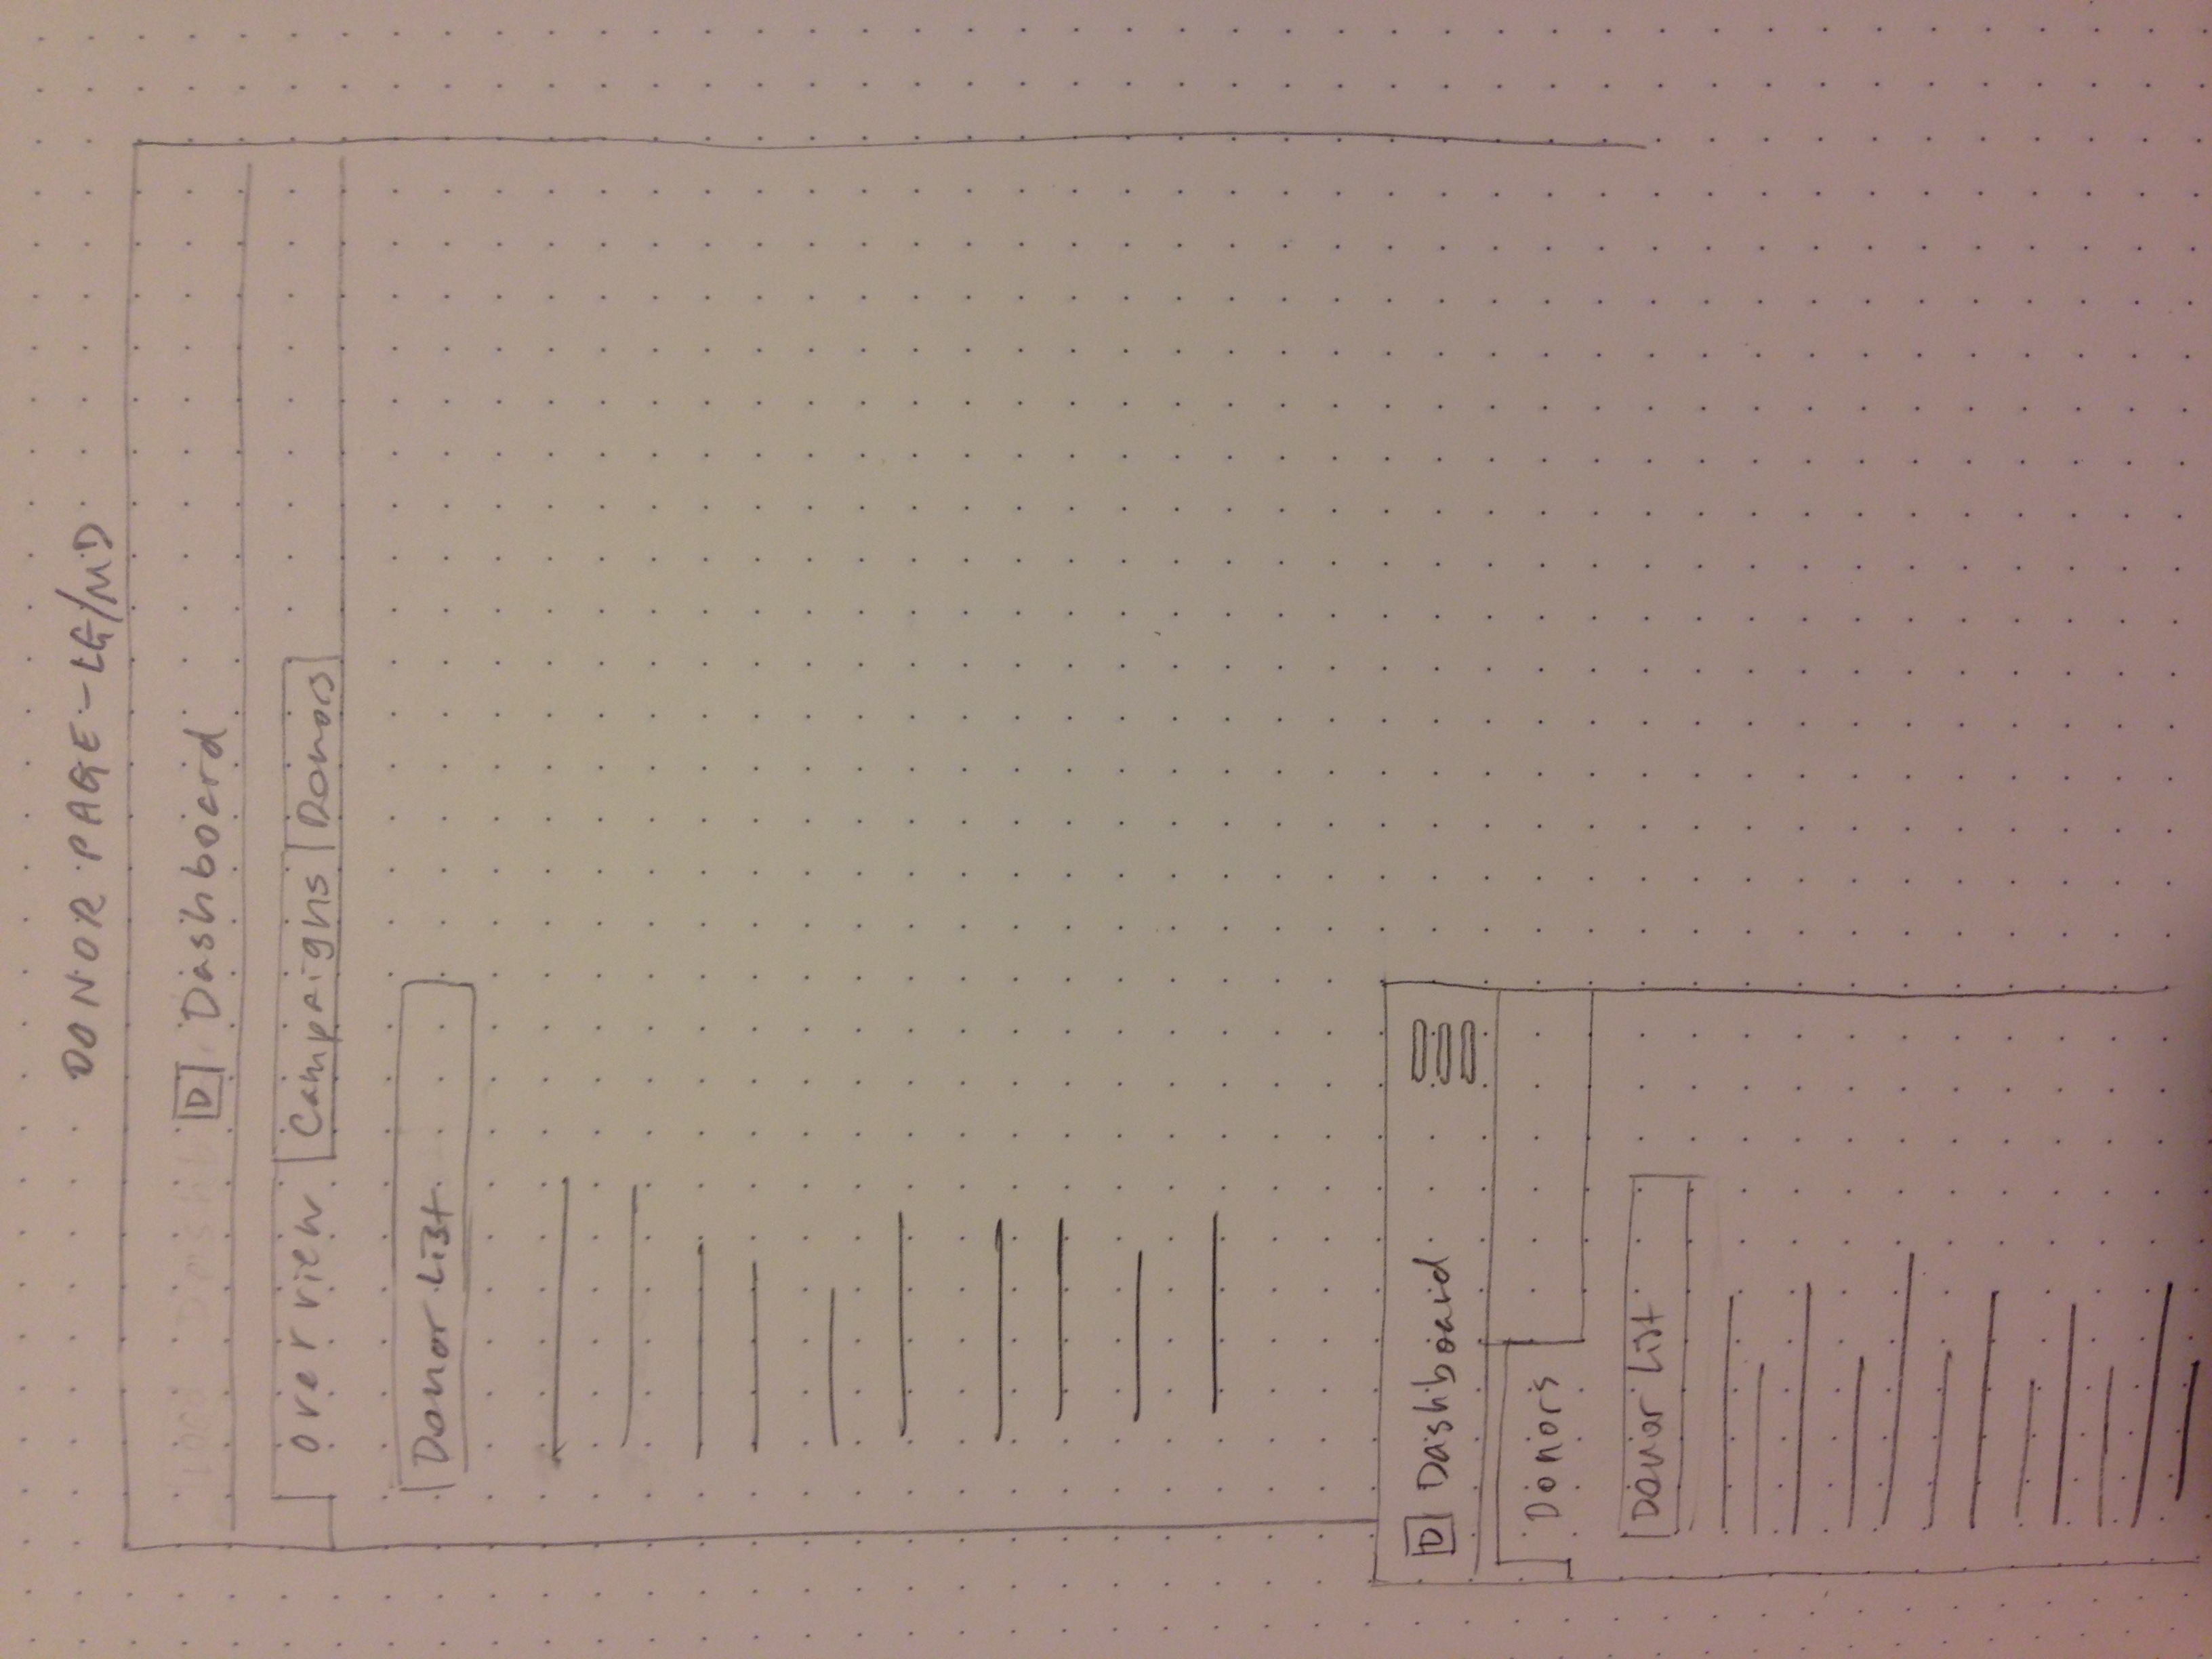 DONOR PAGE-LG/MD
D Dashboard
overview Campaigns Donors
Donor List
D Dashboard
Donors
Donor List